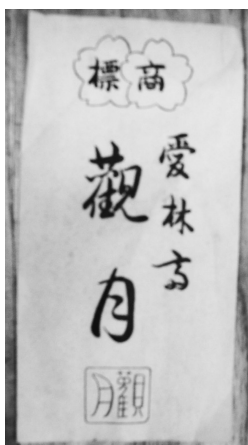 商標
愛林高
觀月
觀月